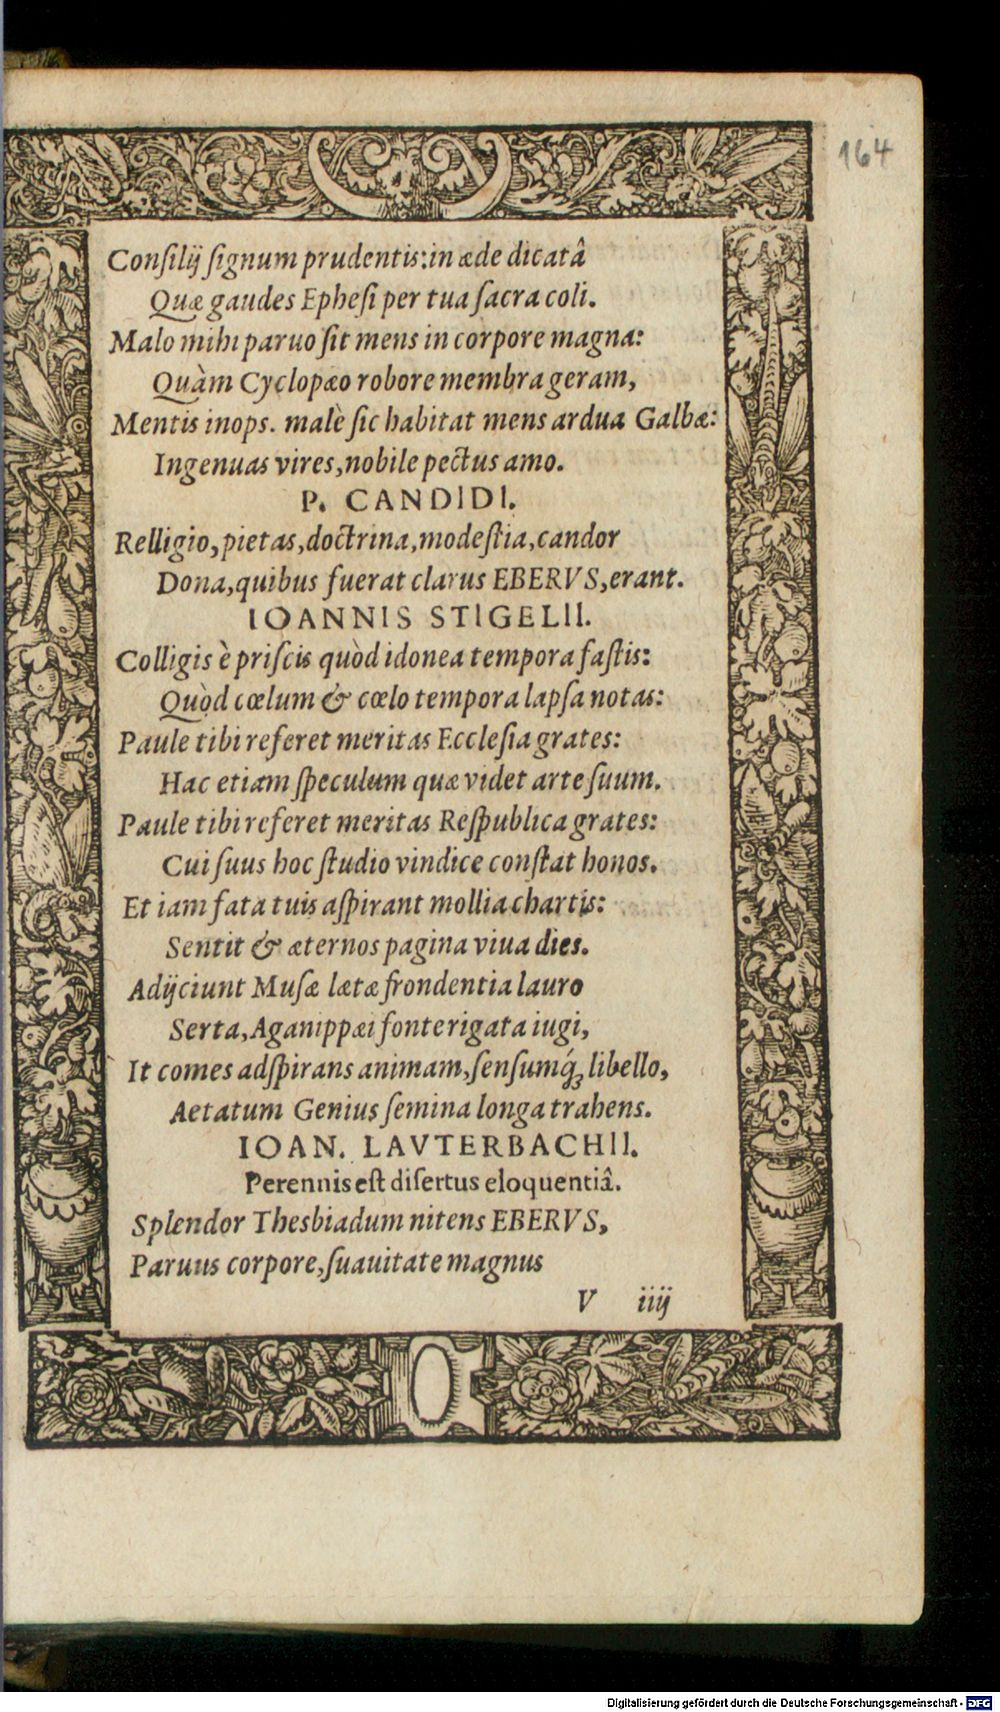 164
Conſilij ſignum prudentis:in æde dicatâ
Quæ gaudes Epheſi per tua ſacra coli.
Malo mihi paruo ſit mens in corpore magna:
Quàm Cyclopæo robore membra geram,
Mentis inops. malè ſic habitat mens ardua Galbæ:
Ingenuas vires, nobile pectus amo.
P. CANDIDI.
Relligio, pietas, doctrina, modeſtia, candor
Dona, quibus fuerat clarus EBERVS, erant.
IOANNIS STIGELII.
Colligis è priſcis quòd idonea tempora faſtis:
Quòd cœlum & cœlo tempora lapſa notas:
Paule tibi referet meritas Eccleſia grates:
Hac etiam ſpeculum quæ videt arte ſuum.
Paule tibi referet meritas Reſpublica grates:
Cui ſuus hoc ſtudio vindice conſtat honos.
Et iam fata tuis aſpirant mollia chartis:
Sentit & æternos pagina viua dies.
Adijciunt Muſæ lætæ frondentia lauro
Serta, Aganippæi fonte rigata iugi,
It comes adſpirans animam, ſenſumq́; libello,
Aetatum Genius ſemina longa trahens.
IOAN. LAVTERBACHII.
Perennis eſt diſertus eloquentiâ.
Splendor Thesbiadum nitens EBERVS,
Paruus corpore, ſuauitate magnus
V iiij
Digitalisierung gefördert durch die Deutsche Forschungsgemeinschaft - DFG